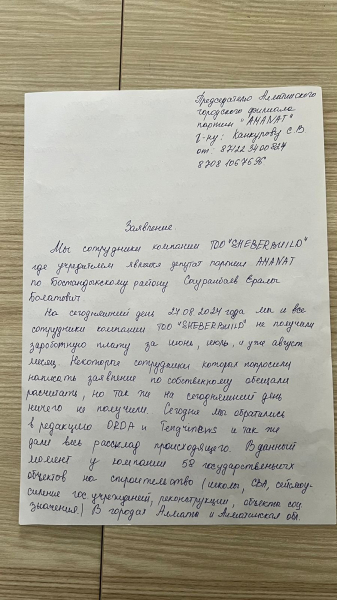 Председателю Алматинского
городского филиала
партии "AMANAT"
г-ну: Канкурову Е В
от: 87122340
87081067696
Заявление.
Мы сотрудники компании ТОО "SHEBERBUILD"
где учредителем является депутат партии AMANAT
по Бостандыкскому району Сауранбаев Ералы
Болатович
На сегодняшний день 27.08.2024 года мы и все
сотрудники компании ТОО "SHEBERBUILD" не получаем
зароботную плату за июнь, июль, и уже август
месяц. Некоторая сотрудникам которая попросили
написать заявление по собственному обещали
расчитать, но так ти на сегодняшний день
ничего не получили. Сегодня мы обратились
в редакцию ORDA и Tengrinews и так же
дали весь расклад происходящего. В данный
момент у компании 58 государственных
объектов на строительство (школы, СВА, сейсмоу-
силение гос учреждений, реконструкции, объекты соц.
значения.) В городах Алматы и Алматинская обл.